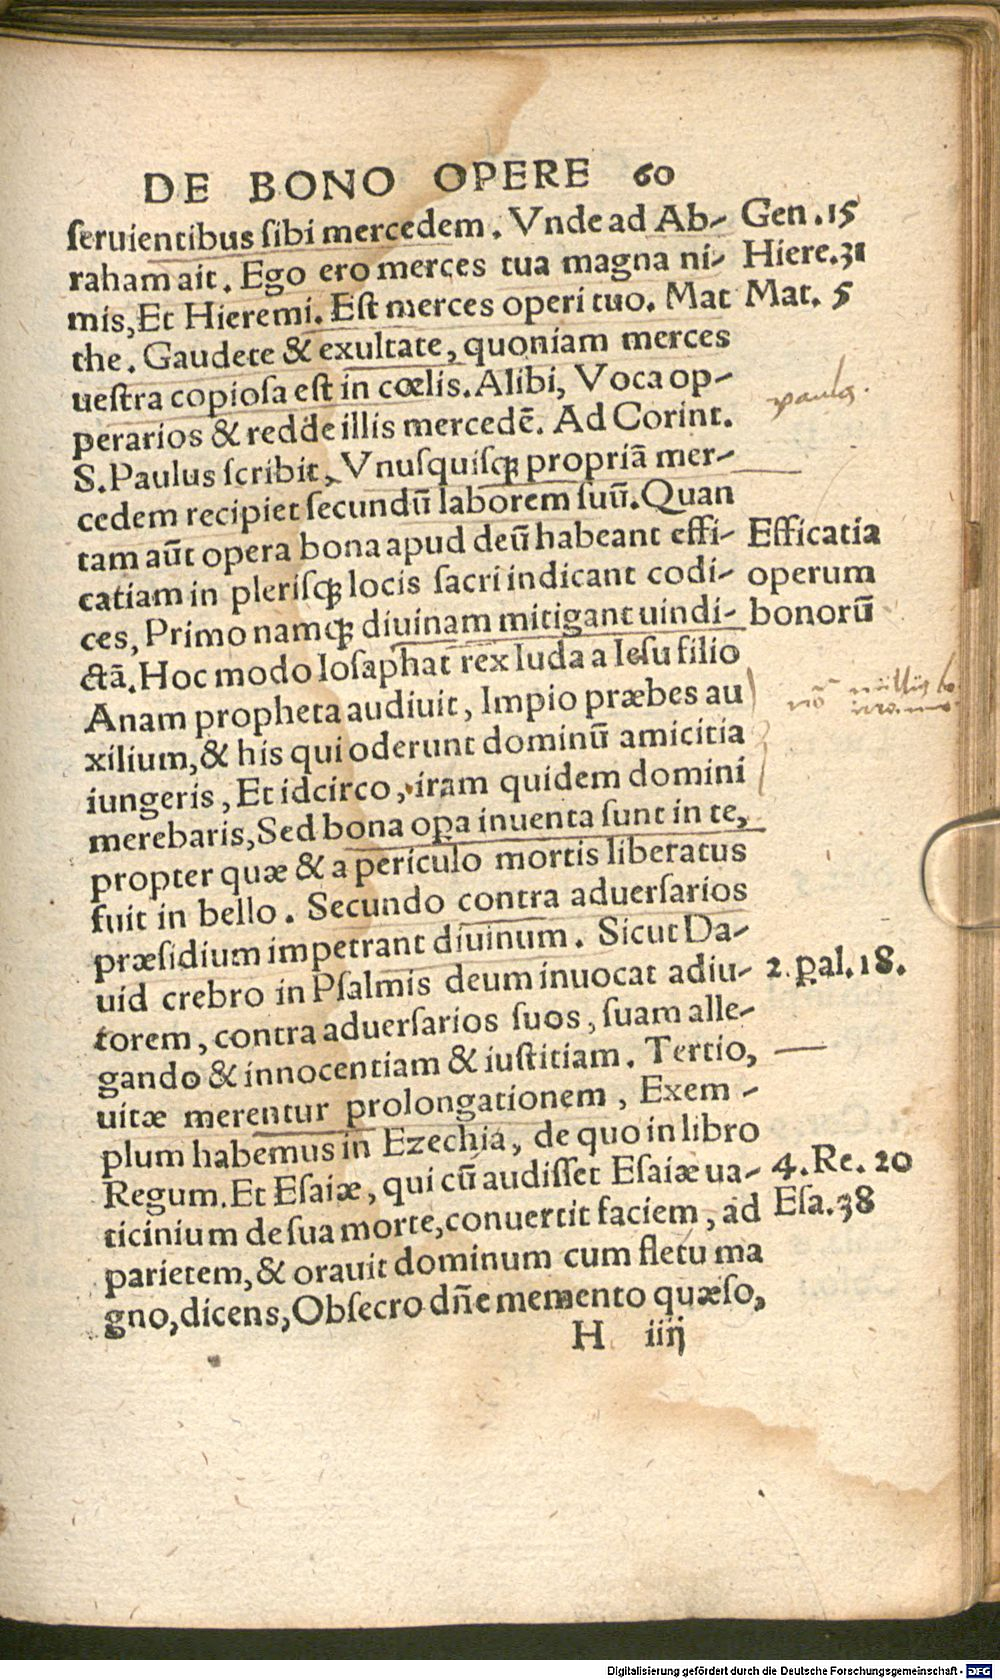 DE BONO OPERE 60
ſeruientibus ſibi mercedem. Vnde ad Ab- Gen. 15
raham ait. Ego ero merces tua magna ni- Hiere. 31
mis, Et Hieremi. Eſt merces operi tuo. Mat Mat. 5
the. Gaudete & exultate, quoniam merces
ueſtra copioſa est in cœlis. Alibi, Voca op-
perarios & redde illis mercedē. Ad Corint.
paulꝰ.
S. Paulus ſcribit, Vnuſquiſqꝫ propriā mer-
cedem recipiet ſecundū laborem ſuū. Quan
tam aūt opera bona apud deū habeant effi- Efficatia
catiam in pleriſqꝫ locis ſacri indicant codi- operum
ces, Primo namqꝫ diuinam mitigant uindi- bonorū
ctā. Hoc modo Ioſaphat rex Iuda a Ieſu filio
Anam propheta audiuit, Impio præbes au
xilium, & his qui oderunt dominū amicitia
iungeris, Et idcirco, iram quidem domini
merebaris, Sed bona oꝑa inuenta ſunt in te,
propter quæ & a periculo mortis liberatus
fuit in bello. Secundo contra aduerſarios
præſidium impetrant diuinum. Sicut Da-
uid crebro in Pſalmis deum inuocat adiu- 2. ꝑal. 18.
torem, contra aduerſarios ſuos, ſuam alle-
gando & innocentiam & iuſtitiam. Tertio,
uitæ merentur prolongationem, Exem-
plum habemus in Ezechia, de quo in libro
Regum. Et Eſaiæ, qui cū audiſſet Eſaiæ ua- 4. Re. 20
ticinium de ſua morte, conuertit faciem, ad Eſa. 38
parietem, & orauit dominum cum fletu ma
gno, dicens, Obſecro dn̄e memento quæſo,
H iiij
Digitalisierung gefördert durch die Deutsche Forschungsgemeinschaft - DFG